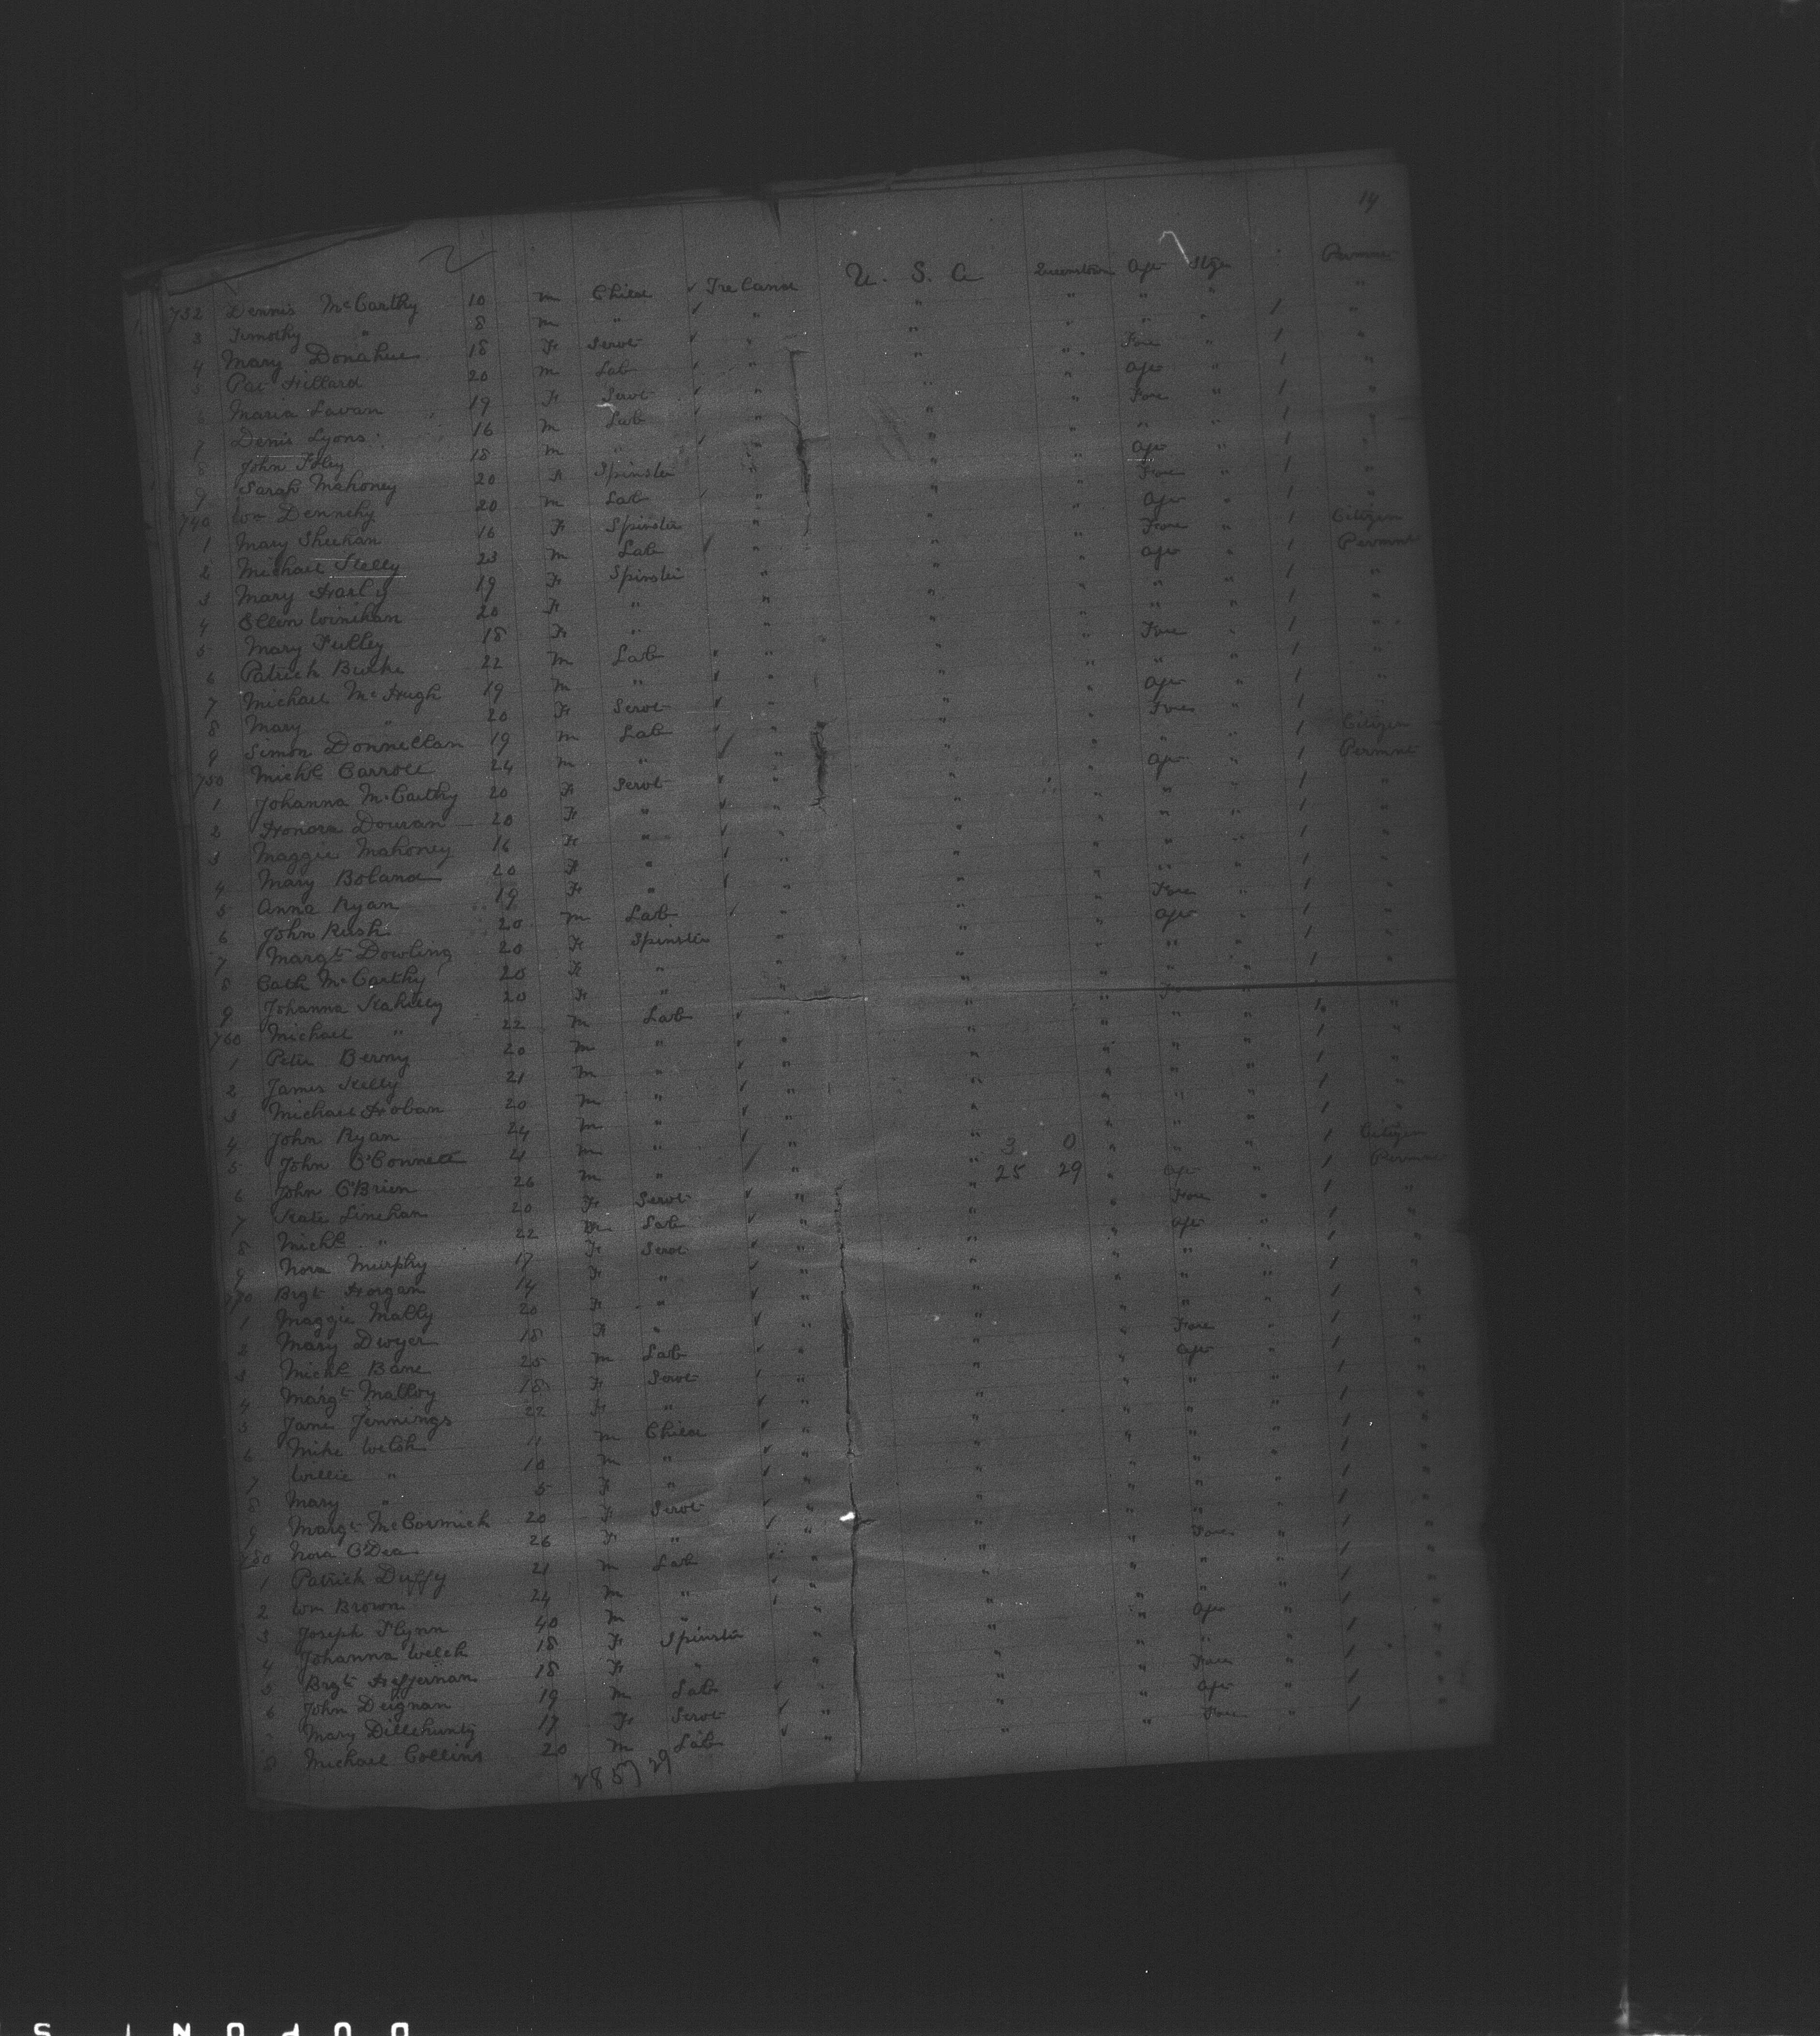 14
732 Dennis McCarthy 10 m Child ✓ Ireland U. S. A Queenstown Aft Stge Permnt
3 Timothy " 8 m " ✓ " " " " " "
4 Mary Donahue 18 F Servt ✓ " " " Fore " / "
5 Pat Hillard 20 m Lab " " " Aft " / "
6 Maria Lavan 19 F Servt ✓ " " " Fore " / "
7 Denis Lyons 16 m Lab ✓ " " " " " / "
8 John Foley 18 m " " " " Aft " / "
9 Sarah Mahoney 20 F Spinster " " " Fore " / "
740 Wm Dennehy 20 m Lab " " " Aft " / "
1 Mary Sheehan 16 F Spinster " " " Fore " / Citizen
2 Michael Kelly 23 m Lab ✓ " " " Aft " / Permnt
3 Mary Harly 19 F Spinster " " " " " / "
4 Ellen Winihan 20 F " " " " " " / "
5 Mary Fulley 18 F " " " " Fore " / "
6 Patrick Burke 22 m Lab ✓ " " " " " / "
7 Michael McHugh 19 m " ✓ " " " Aft " / "
8 Mary " 20 F Servt ✓ " " " Fore " / "
9 Simon Donnellan 19 m Lab ✓ " " " " " / Citizen
750 Michl Carroll 24 m " ✓ " " " Aft " / Permnt
1 Johanna McCarthy 20 F Servt ✓ " " " " " / "
2 Honora Douran 20 F " ✓ " " " " " / "
3 Maggie Mahoney 16 F " ✓ " " " " " / "
4 Mary Boland 20 F " ✓ " " " " " / "
5 Anna Ryan 19 F " ✓ " " " Fore " / "
6 John Rush 20 m Lab ✓ " " " Aft " / "
7 Margt Dowling 20 F Spinster " " " " " / "
8 Cath McCarthy 20 F " " " " " " / "
9 Johanna Kahilly 20 F " " " " Fore " "
760 Michael " 22 m Lab ✓ " " " " " / "
1 Peter Berny 20 m " ✓ " " " " " / "
2 James Kelly 21 m " ✓ " " " " " / "
3 Michael Hoban 20 m " ✓ " " " " " / "
4 John Ryan 24 m " ✓ " " " " " / "
5 John O'Connell 21 m " ✓ " " 3 0 " " " / Citizen
6 John O'Brien 26 m " ✓ " " 25 29 " Aft " / Permnt
7 Kate Linehan 20 F Servt ✓ " " " Fore " / "
8 Michl " 22 m Lab ✓ " " " Aft " / "
9 Nora Murphy 17 F Servt ✓ " " " " " / "
770 Brgt Horgan 14 F " ✓ " " " " " / "
1 Maggie Mally 20 F " ✓ " " " " " / "
2 Mary Dwyer 18 F " ✓ " " " Fore " / "
3 Michl Bane 25 m Lab ✓ " " " Aft " / "
4 Margt Malloy 18 F Servt ✓ " " " " " / "
5 Jane Jennings 22 F " ✓ " " " " " / "
6 Mike Welsh 11 m Child ✓ " " " " " / "
7 Willie " 10 m " ✓ " " " " " / "
8 Mary " 5 F " ✓ " " " " " / "
9 Margt McCormick 20 F Servt ✓ " " " " " / "
780 Nora O'Dea 26 F " ✓ " " " Fore " / "
1 Patrick Duffy 21 m Lab ✓ " " " " " / "
2 Wm Brown 24 m " ✓ " " " " " / "
3 Joseph Flynn 40 m " ✓ " " " Aft " / "
4 Johanna Welch 18 F Spinster " " " " " / "
5 Brgt Heffernan 18 F " " " " Fore " / "
6 John Deignan 19 m Lab ✓ " " " Aft " / "
7 Mary Dillehunty 17 F Servt ✓ " " " Fore " / "
8 Michael Collins 20 m Lab ✓ "
28 57 29